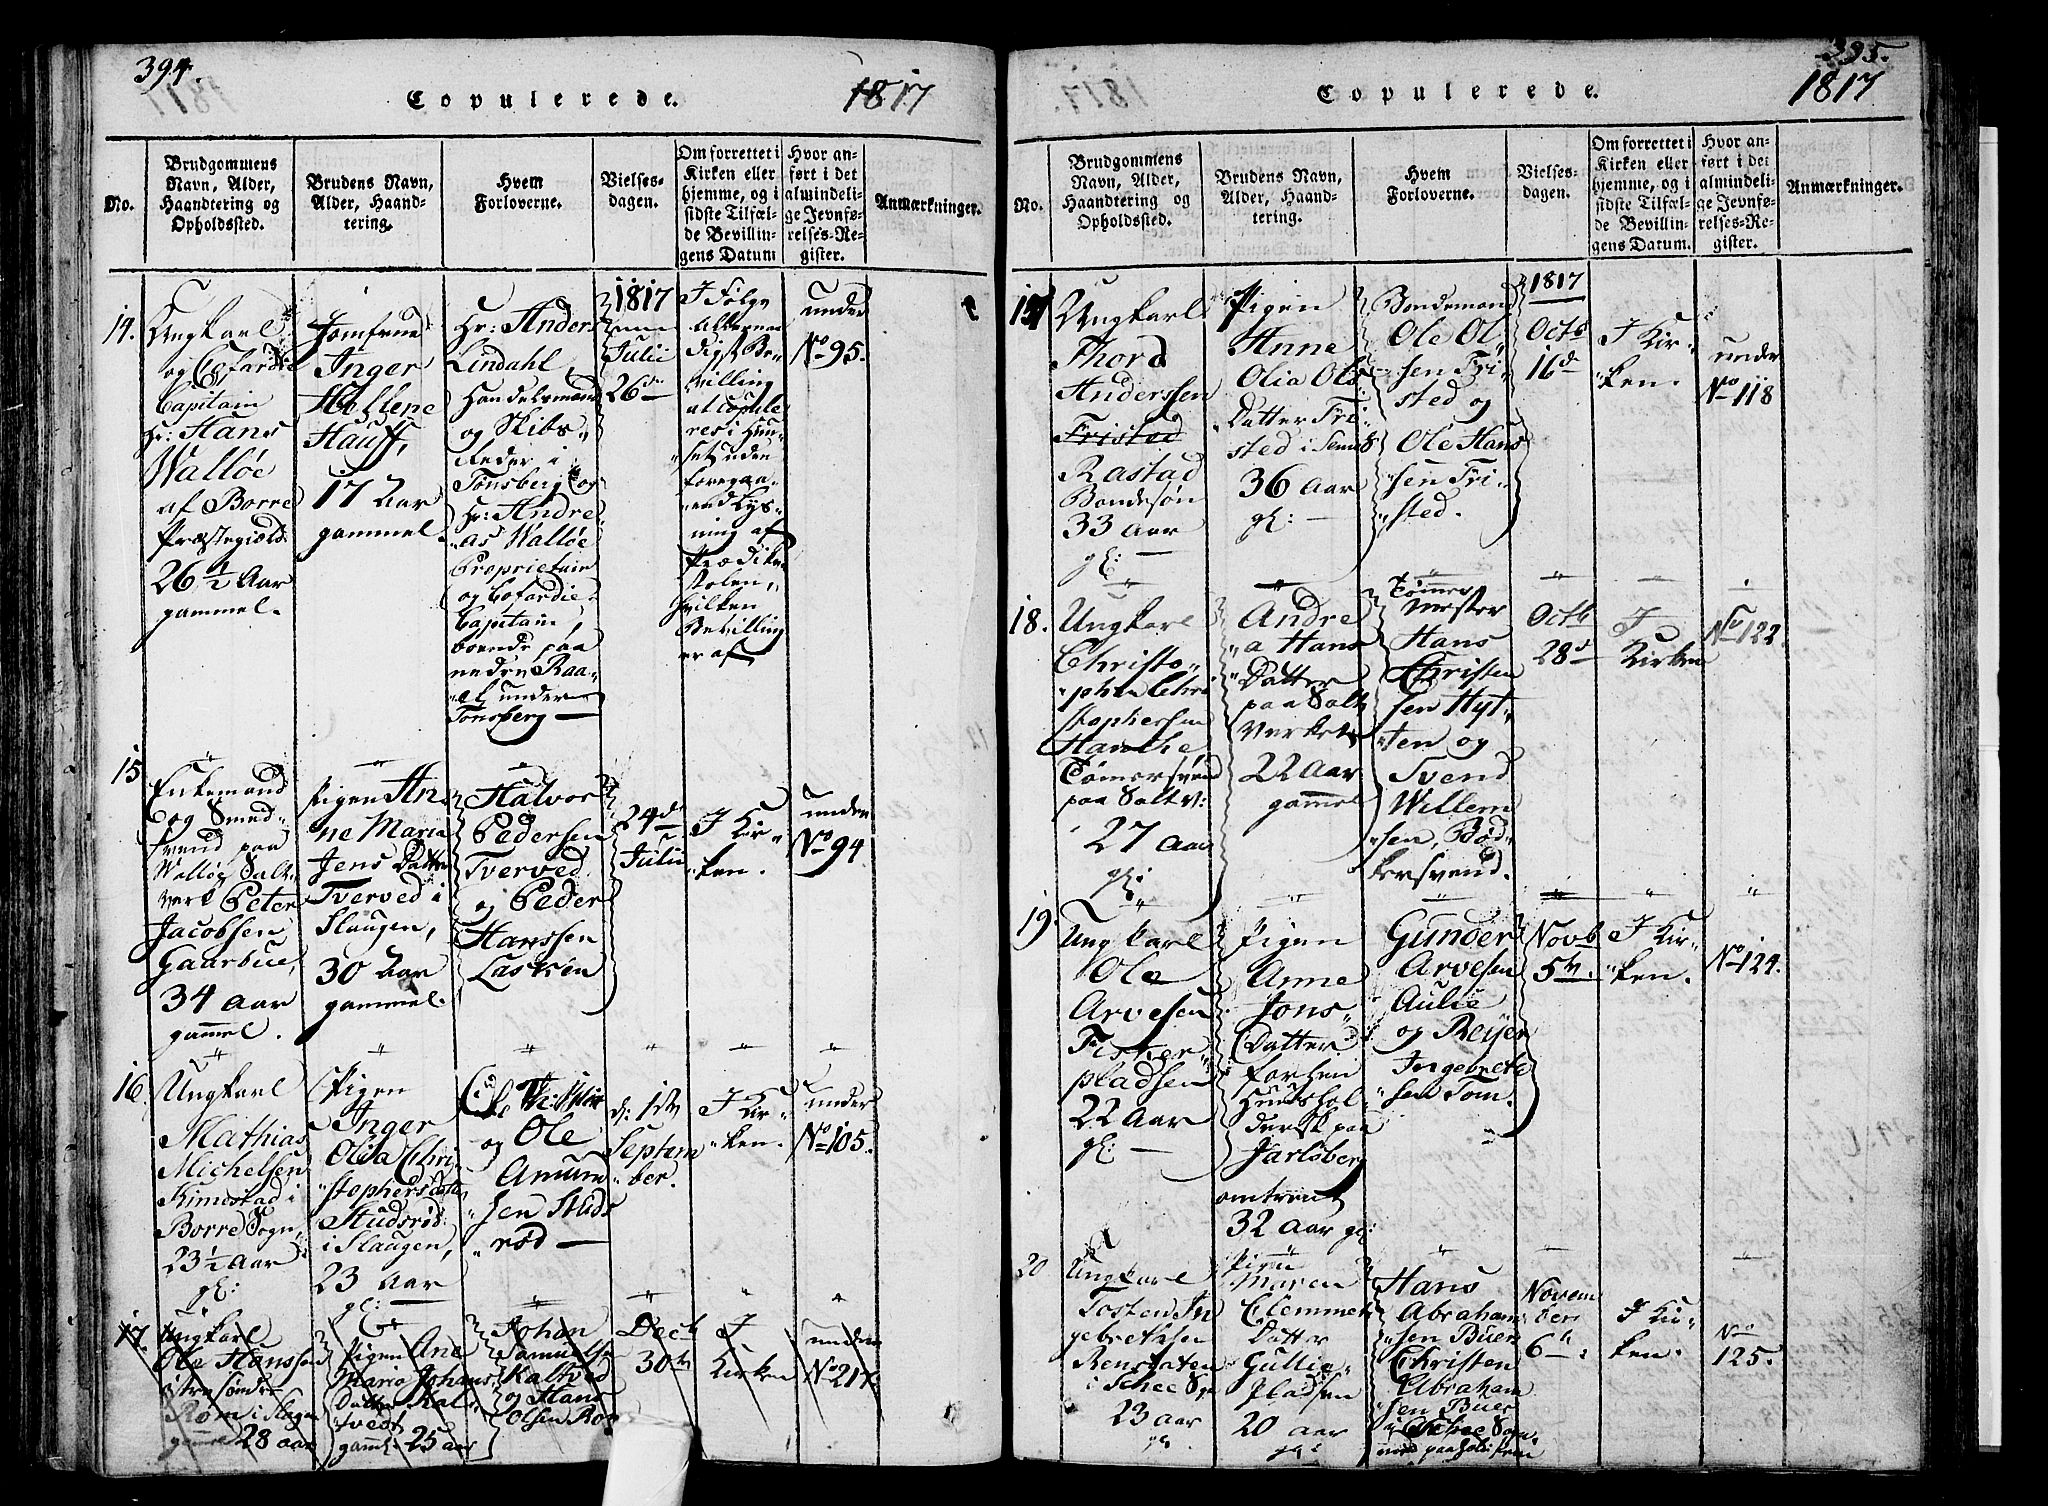 394.
Copulerede.
1817
No.
Brudgommens
Navn, Alder,
Haandtering og
Opholdssted.
Brudens Navn,
Alder, Haand-
tering.
Hvem
Forloverne.
Vielses-
dagen.
Om forrettet i
Kirken eller
hjemme, og i
sidste Tilfæl-
de Bevillin-
gens Datum
Hvor an-
ført i det
almindeli-
ge Jevnfø-
relses-Re-
gister.
Anmærkninger.
14.
Ungkarl
og Cofardie
Capitain
Hr: Hans
Walløe
af Borre
Præstegield
26 1/2 Aar
gammel.
Jomfrue
Inger
Hellene
Hauff,
17 Aar
gammel.
Hr: Anders
Lindahl,
Handelsmand
og Skibs„
Reder i
Tønsberg og
Hr: Andre
„as Walløe
Proprietair
og Cofardie
Capitain,
boende paa
nedre Raa„
„el under
Tønsberg —
1817
Julii
26de
I Følge
Allernaa
digst Be„
villing
at copule
res i Huu„
„set uden
foregaa„
„ende Lys„
ning af
Prædike
stolen,
hvilken
Bevilling
er af
under
No 95.
15
Enkemand
og Smed„
svend paa
Walløe Salt„
verk Peter
Jacobsen
Gaarbue,
34 Aar
gammel.
Pigen An„
ne Maria
Jens Datter
Tverved i
Slaugen,
30 Aar
gammel.
Halvor
Pedersen
Tverved
og Peder
Hanssen
Lasken
24d
Julii
I Kir„
„ken.
under
No 94
16
Ungkarl
Mathias
Michelsen
Kimestad i
Borre Sogn,
23 1/2 Aar
gl:
Pigen
Inger
Olia Chri„
„stophersdatter
Studsrød
i Slaugen,
23 Aar
gl: —
og Ole
Amun„
„sen Studs
„rød —
d: 1ste
Septem
„ber.
I Kir„
„ken.
under
No 105.
17.
Ungkarl
Ole Hanssen
Røm i Slagen
gaml 28 aar
Pigen Ane
Maria Johans
Datter Kal„
tvedt
gaml. 25 aar
Johan
Samuelsen
Kaltved
og Hans
Olsen Rom
Decb
30te
I
Kirken
under
No 217.
395.
Copulerede.
1817
No.
Brudgommens
Navn, Alder,
Haandtering og
Opholdssted.
Brudens Navn,
Alder, Haand-
tering.
Hvem
Forloverne.
Vielses-
dagen.
Om forrettet i
Kirken eller
hjemme, og i
sidste Tilfæl-
de Bevillin-
gens Datum.
Hvor an-
ført i det
almindeli-
ge Jevnfø-
relses-Re-
gister.
Anmærkninger.
17
Ungkarl
Thord
Anderssen
Fristad
Rastad
Bondesøn
33 Aar
gl: —
Pigen
Anne
Olia Ols
Datter Fri„
sted i Sem S
36 Aar
gl: —
Bondemand
Ole Ol„
„sen Fri„
sted og
Ole Hans
„sen Fri„
„sted.
1817
Octb
16d
I Kir„
„ken.
under
No 118
18.
Ungkarl
Christo„
„pher Chri
stophersen
Hanche
Tømersvend
paa Saltv:
27 Aar
gl:
Andre
„a Hans
Datter
paa Salt
Verket,
22 Aar
gammel
Tømmer
Mester
Hans
Christen
sen Hyt„
„ten og
Svend
Willem
„sen, Bød„
„kersvend.
Octb
28d
I
Kirken
No 122
19.
Ungkarl
Ole
Arvesen
Fisker„
pladsen
22 Aar
gl: —
Pigen
Anne
Jons„
Datter
forhen
Huushol„
derske paa
Jarlsberg
omtrent
32 Aar gl:
Gunder
Arvesen
Aulie
og Reijer
Ingebreth
„sen Tom.
Novb
5te.
I Kir„
„ken.
No 124.
20
Ungkarl
Tosten In
gebrethsen
i Schee Sg
23 aar
gl
Pigen
Maren
Clemmets
Datter
Gullie„
Pladsen
20 aar
gl:
Hans
Abraham„
„sen Buer
Christen
Abraham
„sen Buer
Novem
ber
6te.
I Kir„
ken.
No
125.